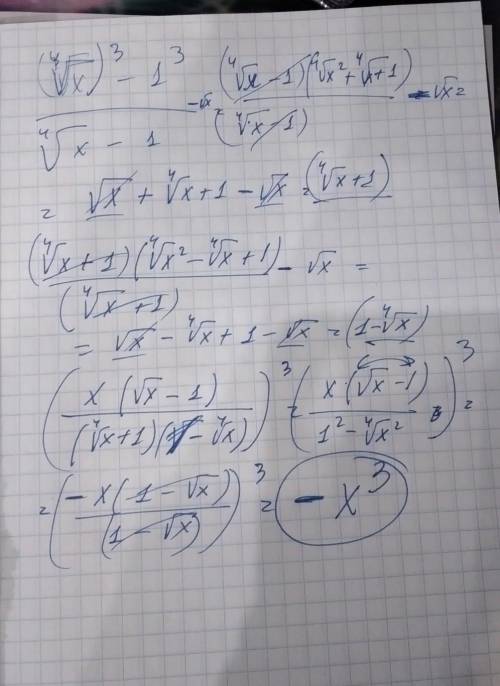 ((⁴√x)³ - 1³)/(⁴√x - 1) - √x = ((⁴√x - 1)(⁴√x² + ⁴√x + 1))/(⁴√x - 1) - √x =
= √x + ⁴√x + 1 - √x = (⁴√x + 1)
((⁴√x + 1)(⁴√x² - ⁴√x + 1))/(⁴√x + 1) - √x =
= √x - ⁴√x + 1 - √x = (1 - ⁴√x)
((x(√x - 1))/((⁴√x + 1)(1 - ⁴√x)))³ = ((x·(√x - 1))/(1² - ⁴√x²))³ =
= ((-x(1 - √x))/(1 - √x))³ = -x³